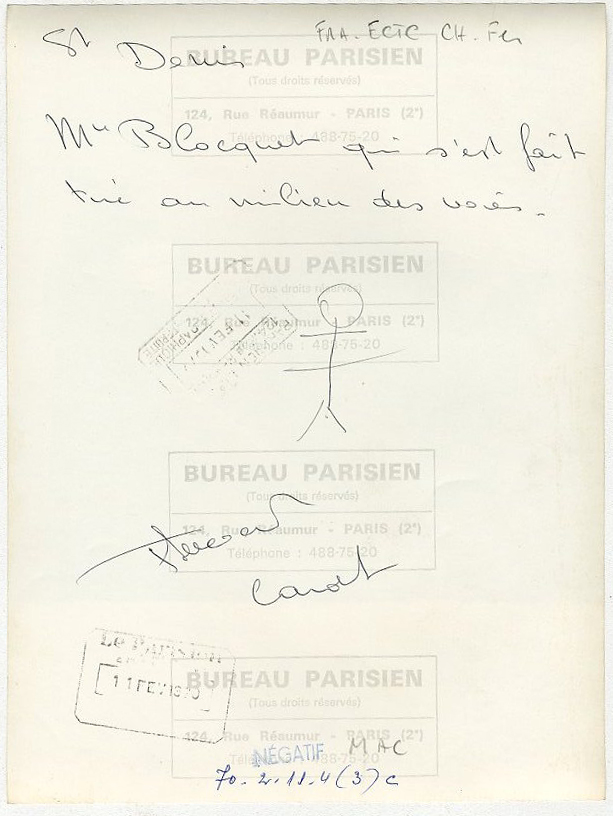 FRA. ECTC CH. Fer
St Denis
BUREAU PARISIEN
(Tous droits réservés)
124, Rue Réaumur - PARIS (2e)
Téléphone : 488-75-20
Mr Blocquet qui s'est fait
tué au milieu des voies.
BUREAU PARISIEN
(Tous droits réservés)
124, Rue Réaumur - PARIS (2e)
Téléphone : 488-75-20
BUREAU PARISIEN
(Tous droits réservés)
124, Rue Réaumur - PARIS (2e)
Téléphone : 488-75-20
Le Parisien
11 FEV 1970
BUREAU PARISIEN
(Tous droits réservés)
124, Rue Réaumur - PARIS (2e)
NÉGATIF MAC
70-2-11-4(3)c